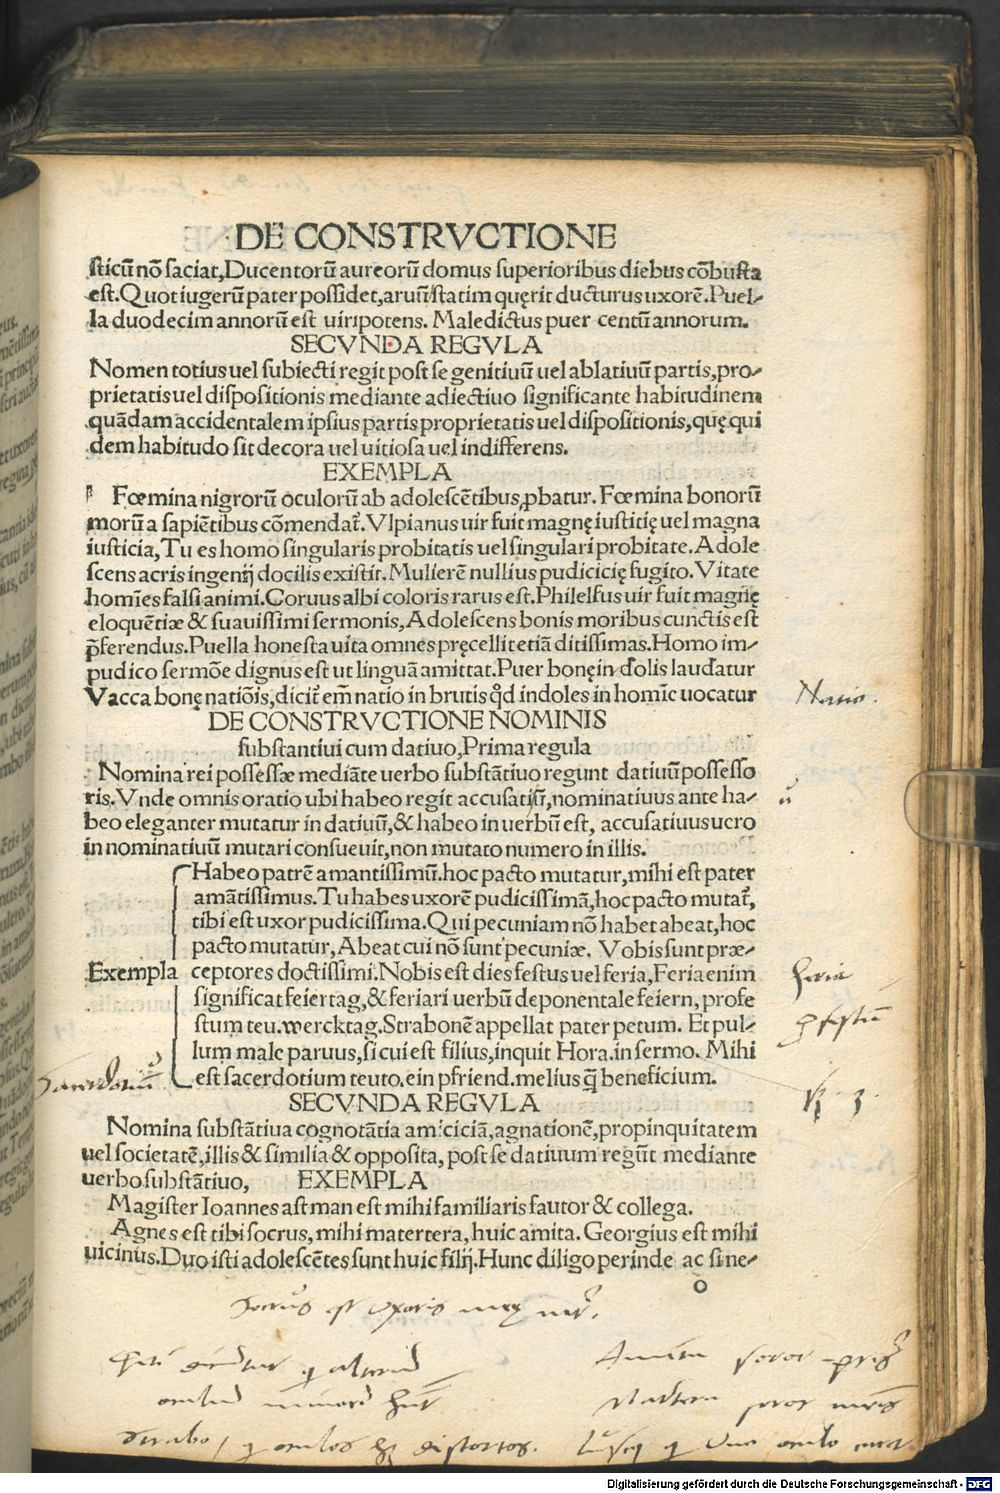 DE CONSTRVCTIONE
sticū nō faciat, Ducentorū aureorū domus superioribus diebus cōbusta
est. Quot iugerū pater possidet, aruū statim quęrit ducturus uxorē. Puel-
la duodecim annorū est uiripotens. Maledictus puer centū annorum.
SECVNDA REGVLA
Nomen totius uel subiecti regit post se genitiuū uel ablatiuū partis, pro-
prietatis uel dispositionis mediante adiectiuo significante habitudinem
quādam accidentalem ipsius partis proprietatis uel dispositionis, quę qui
dem habitudo sit decora uel uitiosa uel indifferens.
EXEMPLA
Fœmina nigrorū oculorū ab adolescētibus ꝓbatur. Fœmina bonorū
morū a sapiētibus cōmendat̄. Vlpianus uir fuit magnę iustitię uel magna
iusticia, Tu es homo singularis probitatis uel singulari probitate. Adole
scens acris ingenij docilis existit. Mulierē nullius pudicicię fugito. Vitate
homīes falsi animi. Coruus albi coloris rarus est. Philelfus uir fuit magnę
eloquētiæ & suauissimi sermonis, Adolescens bonis moribus cunctis est
p̄ferendus. Puella honesta uita omnes pręcellit etiā ditissimas. Homo im-
pudico sermōe dignus est ut linguā amittat. Puer bonę indolis laudatur
Vacca bonę natiōis, dicit̄ em̄ natio in brutis qd̄ indoles in homīe uocatur
Natio.
DE CONSTRVCTIONE NOMINIS
substantiui cum datiuo, Prima regula
Nomina rei possessæ mediāte uerbo substātiuo regunt datiuū possesso
ris. Vnde omnis oratio ubi habeo regit accusatiuū, nominatiuus ante ha-
ū
beo eleganter mutatur in datiuū, & habeo in uerbū est, accusatiuus uero
in nominatiuū mutari consueuit, non mutato numero in illis.
Habeo patrē amantissimū. hoc pacto mutatur, mihi est pater
amātissimus. Tu habes uxorē pudicissimā, hoc pacto mutat̄,
tibi est uxor pudicissima. Qui pecuniam nō habet abeat, hoc
pacto mutatur, Abeat cui nō sunt pecuniæ. Vobis sunt præ-
Exempla ceptores doctissimi. Nobis est dies festus uel feria, Feria enim
feria
significat feiertag, & feriari uerbū deponentale feiern, profe
stum teu. wercktag. Strabonē appellat pater petum. Et pul-
lum male paruus, si cui est filius, inquit Hora. in sermo. Mihi
est sacerdotium teuto. ein pfriend. melius q̄ beneficium.
SECVNDA REGVLA
Nomina substātiua cognotātia amiciciā, agnationē, propinquitatem
uel societatē, illis & similia & opposita, post se datiuum regūt mediante
uerbo substātiuo, EXEMPLA
Magister Ioannes astman est mihi familiaris fautor & collega.
Agnes est tibi socrus, mihi matertera, huic amita. Georgius est mihi
uicinus. Duo isti adolescētes sunt huic filij. Hunc diligo perinde ac si ne-
o
Amita soror
soror
Strabo
Digitalisierung gefördert durch die Deutsche Forschungsgemeinschaft - DFG